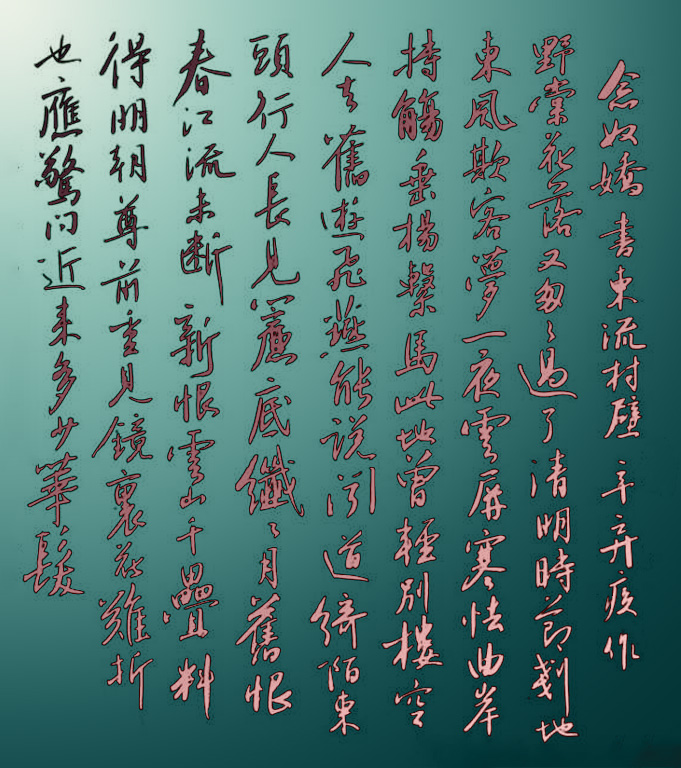 念奴嬌 書東流村壁 辛弃疾作
野棠花落又匆匆過了清明時節剗地
東風欺客夢一夜雲屏寒怯曲岸
持觴垂楊繫馬此地曾輕別樓空
人去舊遊飛燕能說聞道綺陌東
頭行人長見簾底纖纖月舊恨
春江流未斷新恨雲山千疊料
得明朝尊前重見鏡裏花難折
也應驚問近來多少華髮